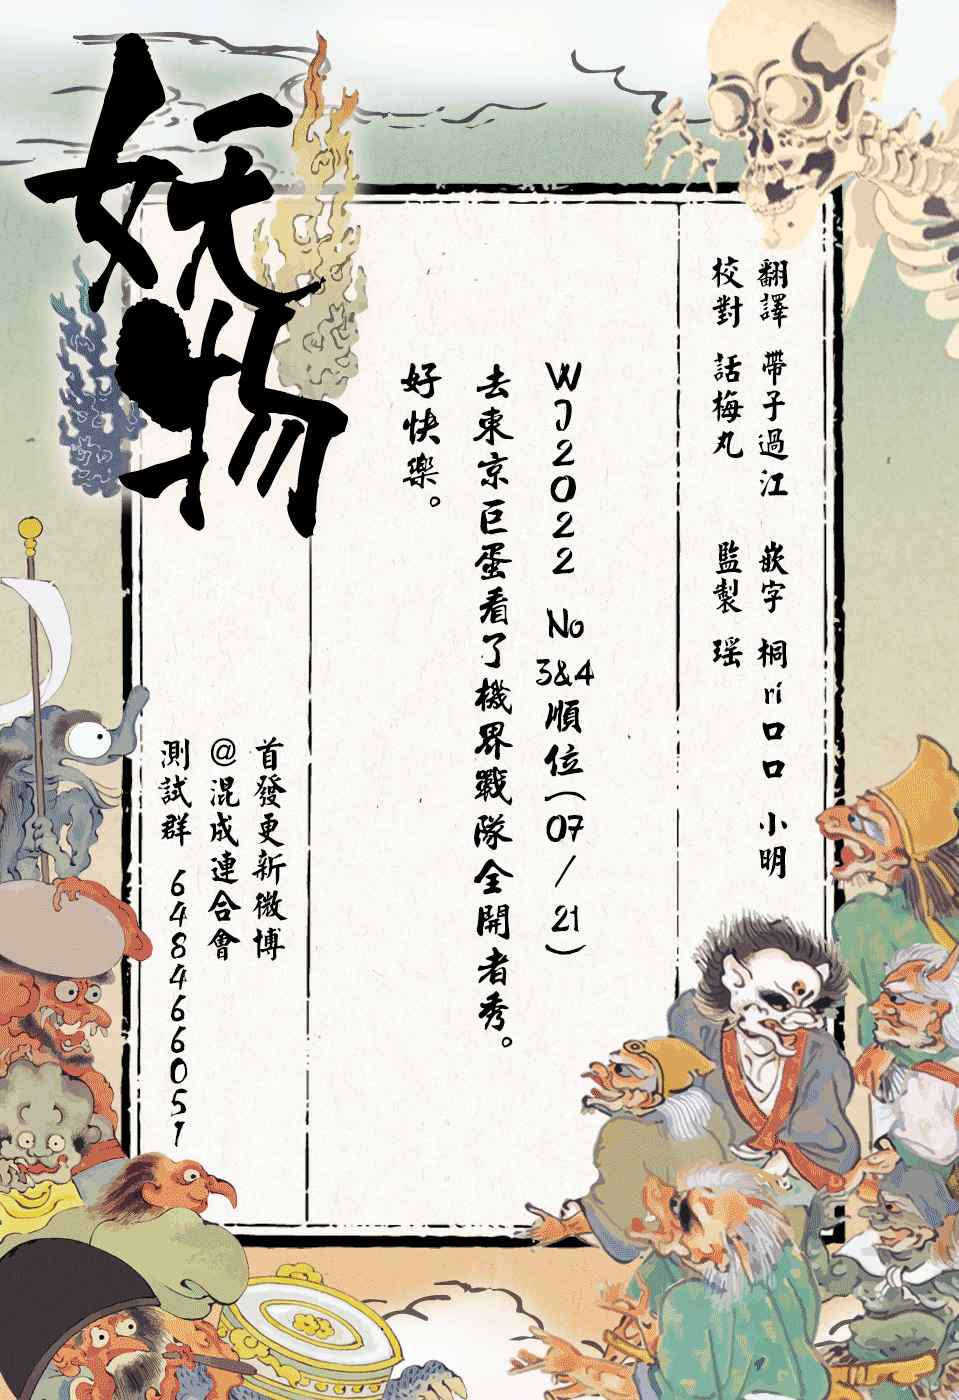 妖物
翻譯 帶子過江 嵌字 桐ri口口 小明
校對 話梅丸 監製 瑶
WJ2022 No 3&4順位(07/21)
去東京巨蛋看了機界戰隊全開者秀。
好快樂。
首發更新微博
@混成連合會
測試群 648466051